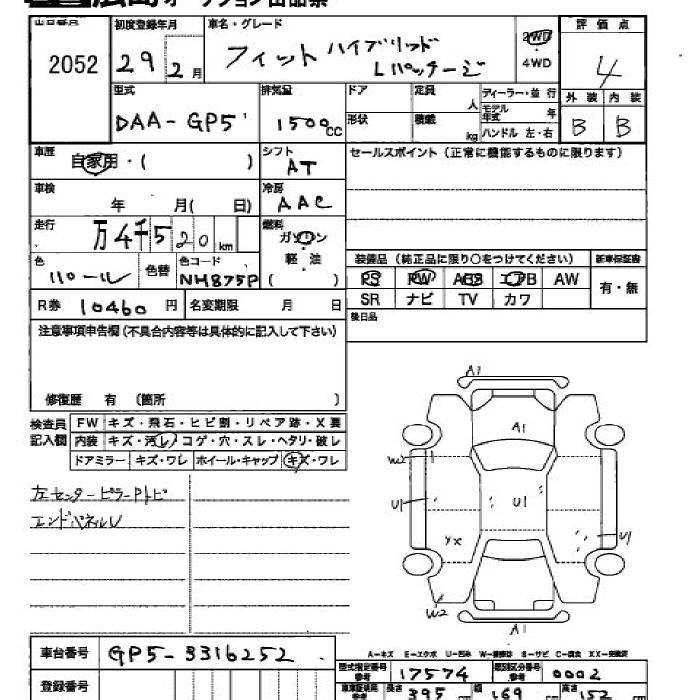 広島オークション出品票
出品番号 初度登録年月 車名・グレード 評価点
2052 29 2月 フィット ハイブリッド Lパッケージ 2WD 4WD 4
型式 排気量 ドア 定員 ディーラー・並行 外装 内装
DAA-GP5 1500cc 形状 積載 人 kg モデル年式 年 ハンドル 左・右 B B
車歴 自家用・( ) シフト AT セールスポイント(正常に機能するものに限ります)
車検 年 月( 日) 冷房 AAC
走行 万4千520km 燃料 ガソリン 軽・油 ( )
装備品(純正品に限り○をつけてください) 新車保証書
色 パール 色替 色コード NH875P PS PW ABS エアB AW 有・無
R券 10460円 名変期限 月 日 SR ナビ TV カワ
注意事項申告欄(不具合内容等は具体的に記入して下さい) 後日品
修復歴 有 (箇所 )
検査員記入欄 FW キズ・飛石・ヒビ割・リペア跡・X要
内装 キズ・汚レ・コゲ・穴・スレ・ヘタリ・破レ
ドアミラー キズ・ワレ ホイール・キャップ キズ・ワレ
左センターピラーPトビ
エンドパネルU
A1
A1
W2
U1 U1 U1
YX
W2
A1
A-キズ E-エクボ U-凹み W-補修跡 S-サビ C-腐食 XX-交換済
車台番号 GP5-3316252 型式指定番号 参考 17574 類別区分番号 参考 0002
登録番号 車車証明用 参考 長さ 395cm 幅 169cm 高さ 152cm